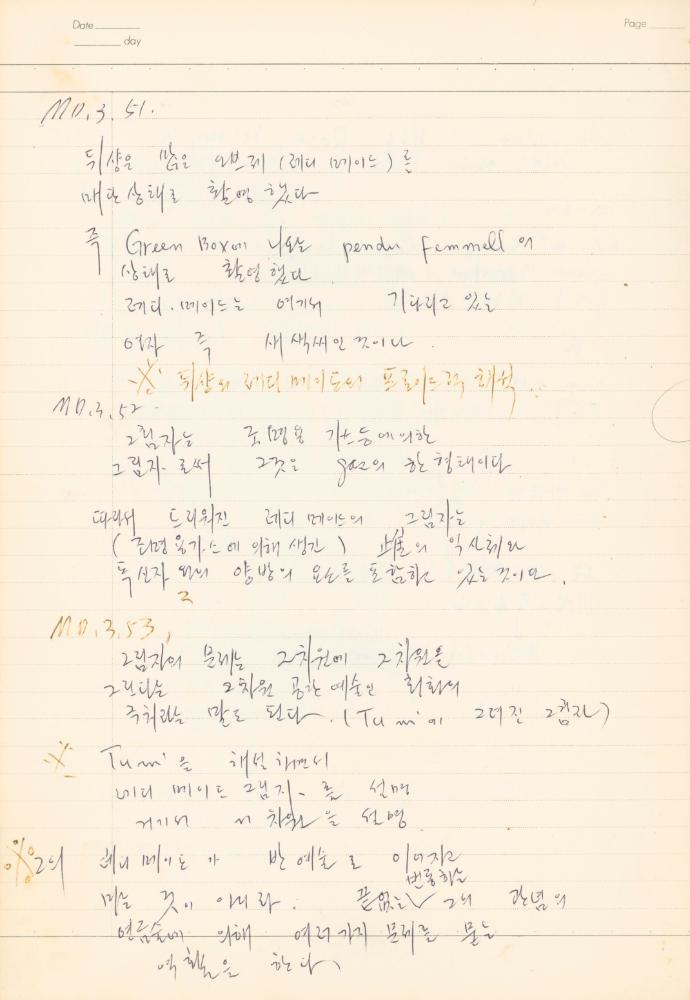 Date
day
Page
MD.3.51.
뒤샹은 많은 오브제 (레디 메이드)를
매단 상태로 촬영 했다
즉 Green Box에 나오는 pendu femmell의
상태로 촬영 했다
레디.메이드는 여기서 기다리고 있는
여자 즉 새색씨인 것이다.
※ 뒤샹의 레디메이드의 프로이드적 해석..
MD.3.52.
그림자는 조명용 가스등에의한
그림자.로써 그것은 gaz의 한 형태이다
따라서 드리워진 레디 메이드의 그림자는
(조명용가스에 의해 생긴) 의 익사체와
독신자 와의 양방의 요소를 포함하고 있는것이다.
MD.3.53,
그림자의 문제는 2차원에 2차원을
그린다는 2차원 공간 예술인 회화의
주처라는 말도 된다. (Tu m'에 그려진 그림자)
※ Tu m'을 해설하면서
레디 메이드 그림자.를 설명
거기서 차원을 설명
※ 그의 레디 메이드가 반예술로 이어지고
변통하는
마는 것이 아니라. 끝없는 그의 관념의
연금술에 의해 여러가지 문제를 묻는
역활을 한다.